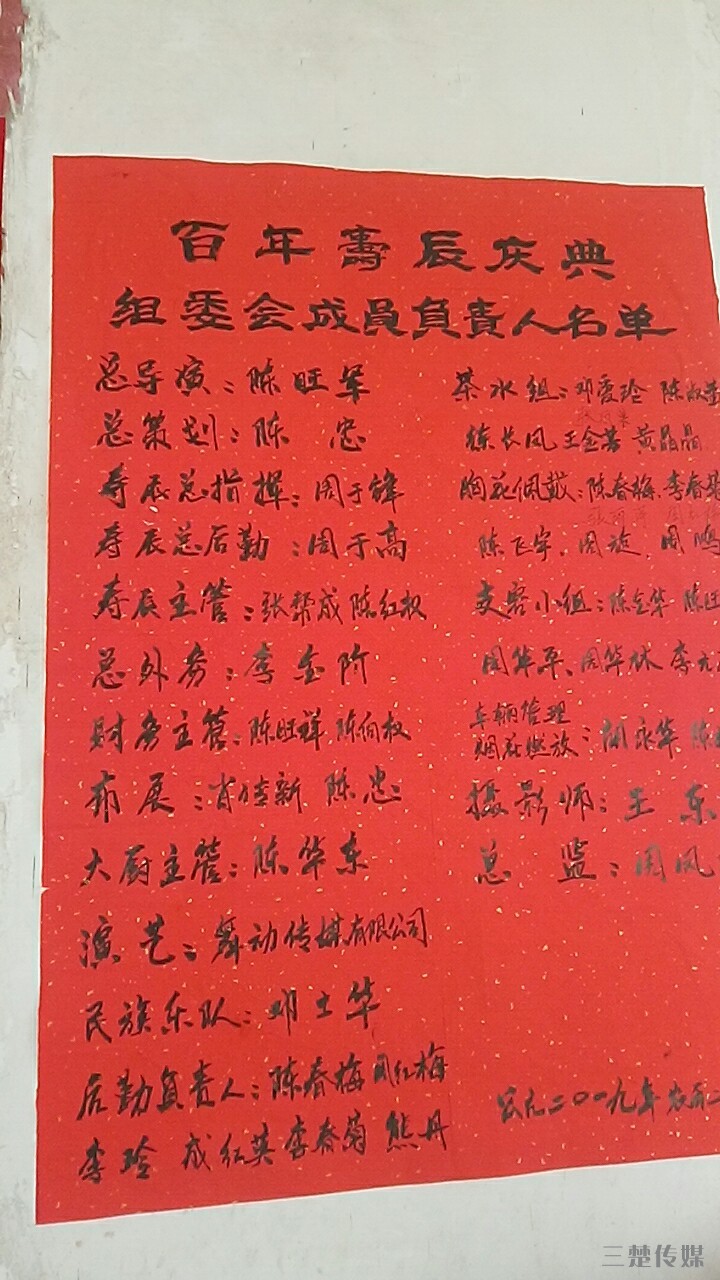 百年寿辰庆典
组委会成员负责人名单
总导演：陈旺军
总策划：陈 忠
寿辰总指挥：周于锋
寿辰总后勤：周于高
寿辰主管：张帮成 陈红权
总外务：李金阶
财务主管：陈旺祥 陈伯权
布展：肖佳新 陈忠
大厨主管：陈华东
演艺：舞动传媒有限公司
民族乐队：邓士华
后勤负责人：陈春梅 周红梅
李玲 成红英 李春菊 熊丹
茶水组：邓爱玲 陈
陈长凤 王金 黄晶晶
胸花佩戴：陈春梅、李春菊
陈飞宇、周旋、周鸣
支客小组：陈金华 陈旺
周华平、周华林 李
车辆管理
烟花燃放：胡永华 陈
摄影师：王 东
总 监：周凤
公元二〇一九年农历二
三楚传媒